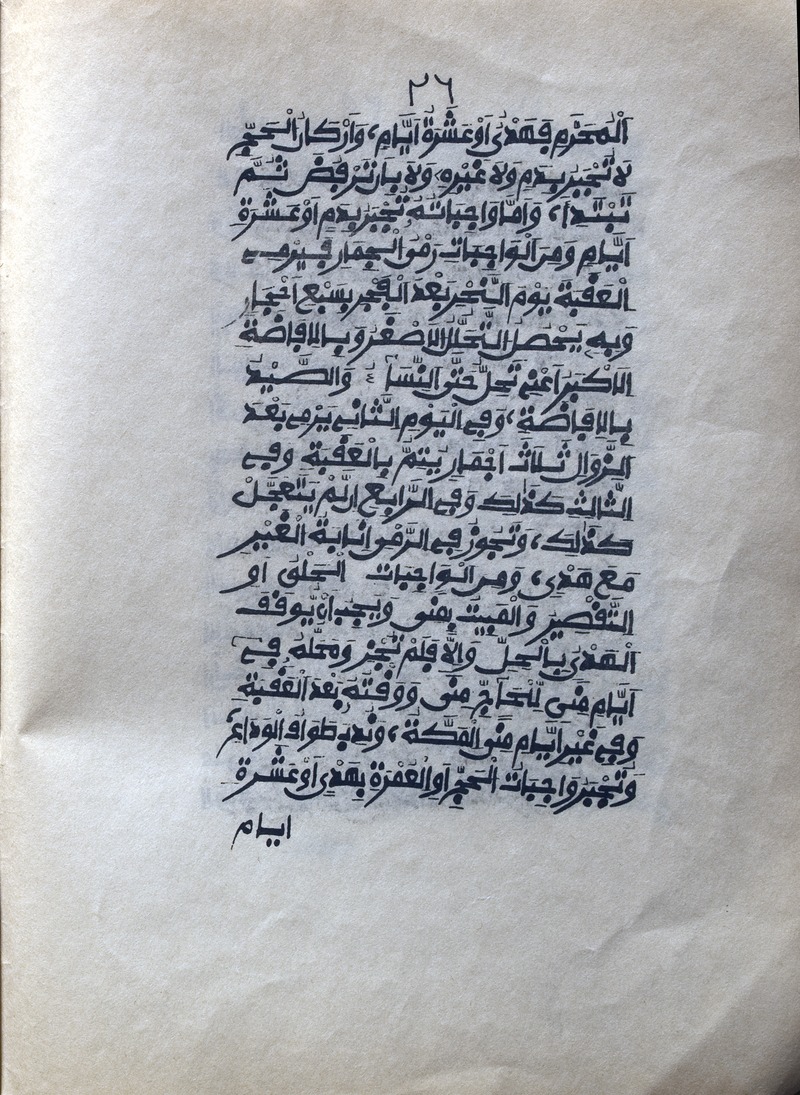 ٢٦
الْمُحَرَّمِ فَهَدْىٌ اَوْ عَشَرَةُ اَيَّامٍ، وَاَرْكَانُ الْحَجِّ
لَا تُجْبَرُ بِدَمٍ وَلَا غَيْرِهِ، وَلَا بِاَن تَرْفِضَ ثُمَّ
تَبْتَدِأَ، وَاَمَّا وَاجِبَاتُهُ تُجْبَرُ بِدَمٍ اَوْ عَشَرَةِ
اَيَّامٍ وَمِنَ الْوَاجِبَاتِ رَمْىُ الْجِمَارِ فَيَرْمِى
الْعَقَبَةَ يَوْمَ النَّحْرِ بَعْدَ الْفَجْرِ بِسَبْعِ اَحْجَارٍ
وَبِهِ يَحْصُلُ التَّحَلُّلُ الْاَصْغَرُ وَبِالاِفَاضَةِ
الْاَكْبَرُ اَعْنِى تَحِلُّ حَتَّى النِّسَآءُ وَالصَّيْدُ
بِالاِفَاضَةِ، وَفِى الْيَوْمِ الثَّانِى يَرْمِى بَعْدَ
الزَّوَالِ ثَلَاثَ اَجْمَارٍ يَتِمُّ بِالْعَقَبَةِ وَفِى
الثَّالِثِ كَذَلِكَ وَفِى الرَّابِعِ اِن لَّمْ يَتَعَجَّلْ
كَذَلِكَ، وَتَجُوزُ فِى الرَّمْىِ اِنَابَةُ الْغَيْرِ
مَعَ هَدْىٍ، وَمِنَ الْوَاجِبَاتِ الْحَلْقُ اَوِ
التَّقْصِيرُ وَالْمَبِيتُ بِمِنًى وَيَجِبُ اَنْ يُّوقَفَ
الْهَدْىُ بِالْحِلِّ وَاِلَّا فَلَمْ تُجْزِ وَمَحَلُّهُ فِى
اَيَّامِ مِنًى لِّلْحَاجِّ مِنًى وَوَقْتُهُ بَعْدَ الْعَقَبَةِ
وَفِى غَيْرِ اَيَّامِ مِنًى الْمَكَّةُ، وَنُدِبَ طَوَافُ الْوَدَاعِ
وَتُجْبَرُ وَاجِبَاتُ الْحَجِّ اَوِ الْعُمْرَةِ بِهَدْىٍ اَوْ عَشَرَةِ
ايام